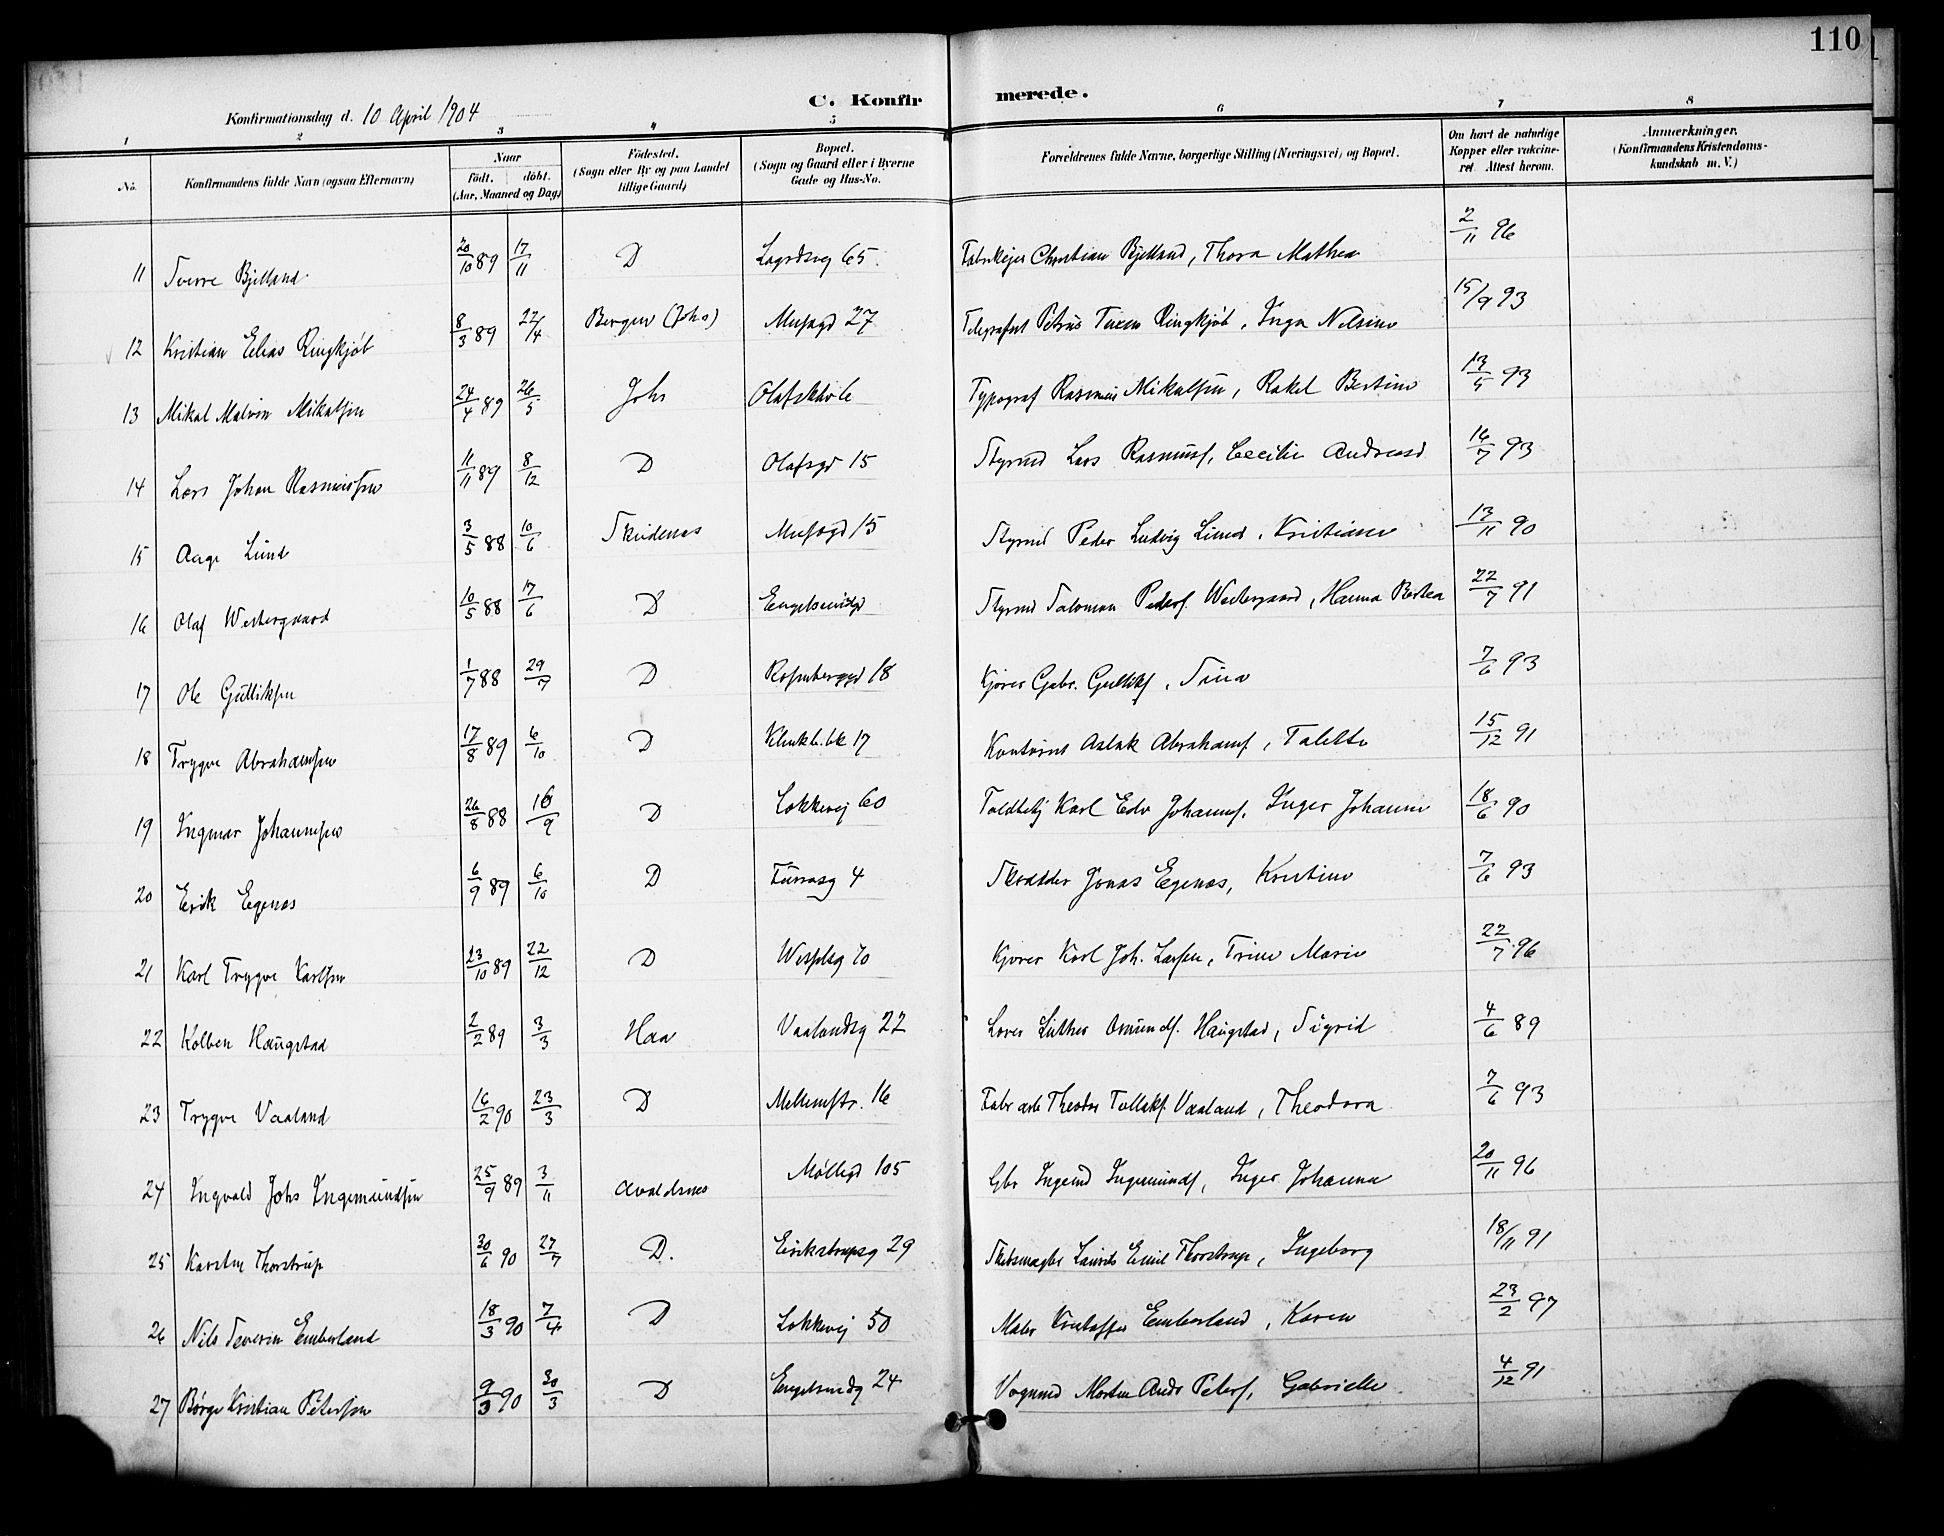 110
C. Konfirmerede.
Konfirmationsdag d. 10 April 1904
1 2 3 4 5 6 7 8
No. Konfirmandens fulde Navn (ogsaa Efternavn) Naar født. døbt. (Aar, Maaned og Dag) Fødested. (Sogn eller By og paa Landet tillige Gaard) Bopæl. (Sogn og Gaard eller i Byerne Gade og Hus-No. Forældrenes fulde Navne, borgerlige Stilling (Næringsvei) og Bopæl. Om havt de naturlige Kopper eller vaccineret. Attest herom. Anmærkninger. (Konfirmandens Kristendomskundskab m. V.)
11 Sverre Bjelland 20/10 89 17/11 D 65 Christian Bjelland, Thora Mathea 2/11 96
12 Kristian Elias Ringkjøb 8/3 89 22/4 Bergen (Johs) Musægd 27 Petrus Ringkjøb, Inga Nilsine 15/9 93
13 Mikal Malvin Mikalsen 24/4 89 26/5 Johs Typograf Rasmus Mikalsen, Rakel Bertine 13/5 93
14 Lars Johan Rasmussen 11/11 89 8/12 D Olafsgd 15 Styrmd Lars Rasmuss, Cecilie Andreasd 16/7 93
15 Aage Lund 3/5 88 10/6 Skudenes Musægd 15 Styrmd Peder Ludvig Lund, Kristiane 13/11 90
16 Olaf Westergaard 10/5 88 17/6 D Styrmd Salomon Peders. Westergaard, Hanna Bertea 22/7 91
17 Ole Gulliksen 1/7 88 29/7 D Rosenberggd 18 Kjører Gabr. Gulliks, 7/6 93
18 Trygve Abrahamsen 17/8 89 6/10 D 17 Kontorist Aslak Abrahams, Talette 15/12 91
19 Ingmar Johannesen 26/8 88 16/9 D Løkkevej 60 Karl Edv Johannes, Inger Johanne 18/6 90
20 Erik Egenes 6/9 89 6/10 D 4 Skrædder Jonas Egenes, Kristine 7/6 93
21 Karl Trygve Karlsen 23/10 89 22/12 D Kjører Karl Joh. Larsen, Trine Marie 22/7 96
22 Kolben Haugstad 2/2 89 3/3 Haa Vaalandsg 22 Lærer Luther Omunds. Haugstad, Sigrid 4/6 89
23 Trygve Vaaland 16/2 90 23/3 D Mellemstr. 16 Fabr arb Theodor Tollaks. Vaaland, Theodora 7/6 93
24 Ingvald Johs Ingemundsen 25/9 89 3/11 Avaldsnes Møllegd 105 Gbr Ingemd Ingemunds, Inger Johanna 20/11 96
25 Karsten Thorstrup 30/6 90 27/7 D. 29 Laurits Emil Thorstrup, Ingeborg 18/11 91
26 Nils Severin Emberland 18/3 90 7/4 D Løkkevej 50 Maler Kristoffer Emberland, Karen 23/2 97
27 Børge Kristian Petersen 9/3 90 30/3 D Engelsmdg 24 Vognmd Morten Andr Peters, Gabrielle 4/12 91